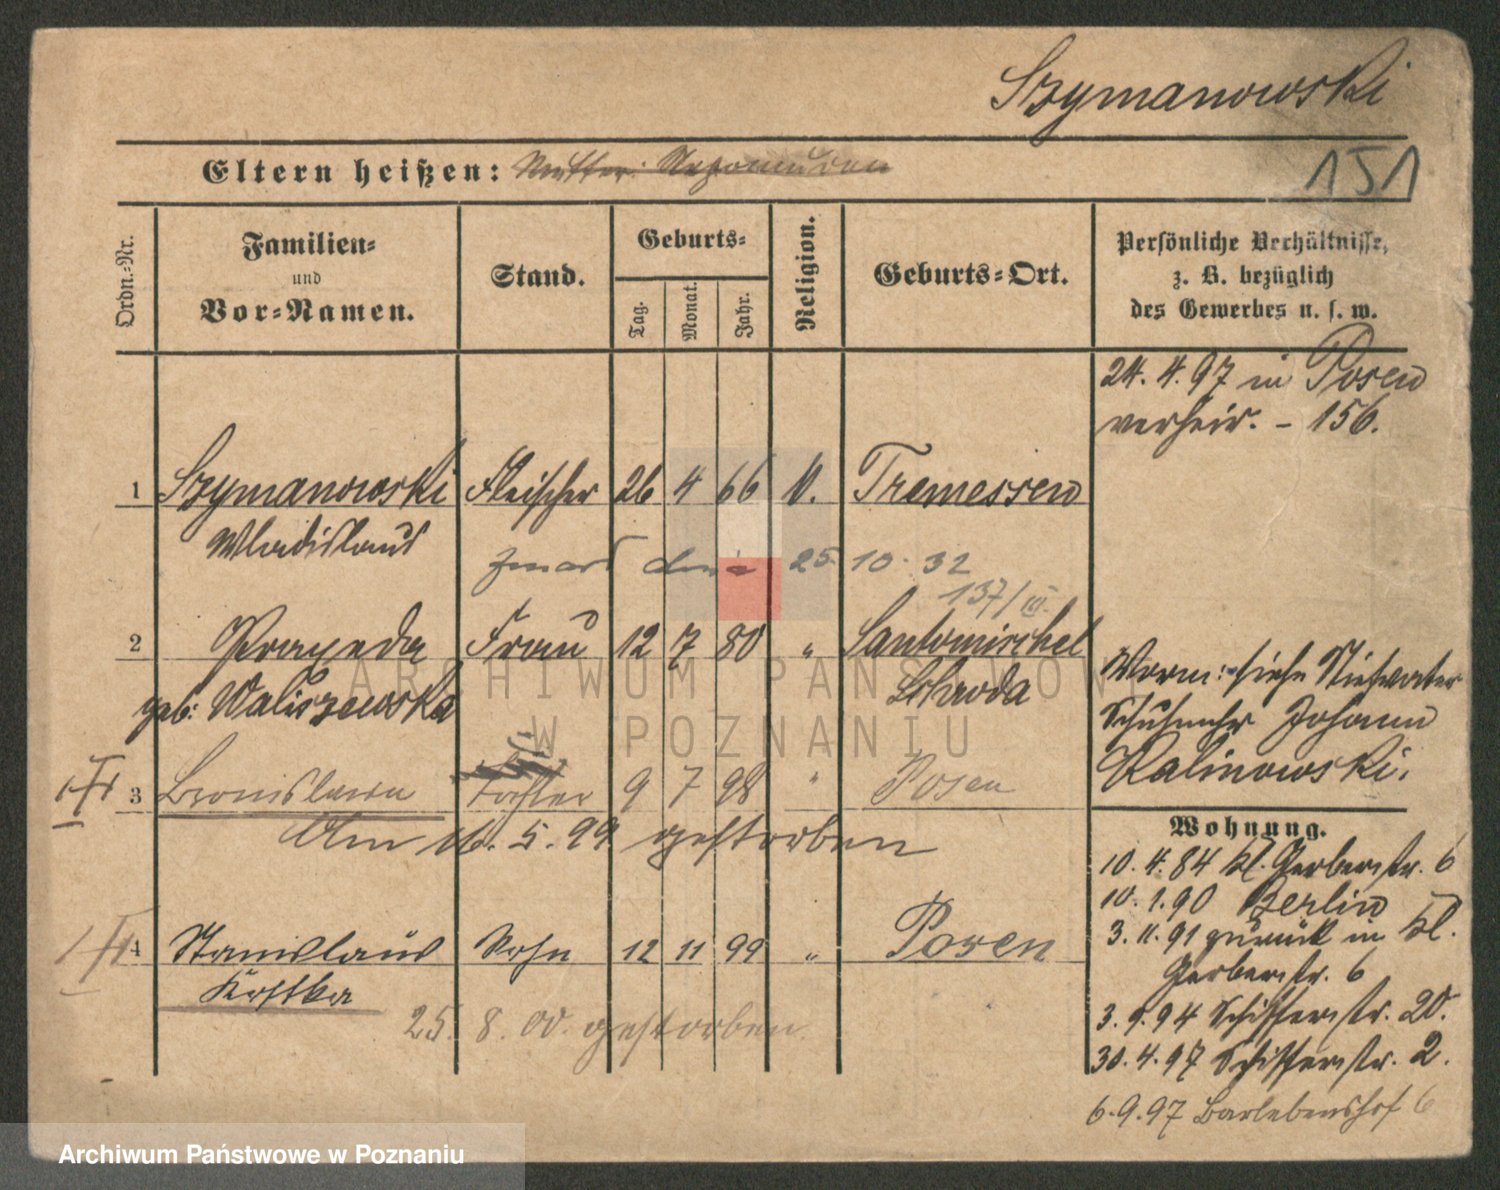 Szymanowski
Eltern heißen: Mutter:
151
Ordn.-Nr.
Familien-
und
Vor-Namen.
Stand.
Geburts-
Tag.
Monat.
Jahr.
Religion.
Geburts-Ort.
Persönliche Verhältnisse,
z. B. bezüglich
des Gewerbes u. s. w.
24. 4. 97 in Posen
verheir. - 156.
1 Szymanowski Fleischer 26 4 66 Tremessen
Wladislaus
zmarł dnia 25. 10. 32
137/III.
2 Praxeda Frau 12 7 80 " Santomischel
geb. Waliszewska Schroda
Vorm: siehe Stiefvater
Schuhmchr Johann
Kalinowski.
3 Bronislawa Tochter 9 7 98 " Posen
Am 16. 5. 99 gestorben
4 Stanislaus Sohn 12 11 99 " Posen
Kostka
25. 8. 00. gestorben.
Wohnung.
10. 4. 84 kl. Gerberstr. 6
10. 1. 90 Berlin
3. 11. 91 zurück in kl.
Gerberstr. 6
3. 9. 94 Schifferstr. 20.
30. 4. 97 Schifferstr. 2.
6. 9. 97 Bartlebenshof 6
ARCHIWUM PAŃSTWOW
W POZNANIU
Archiwum Państwowe w Poznaniu